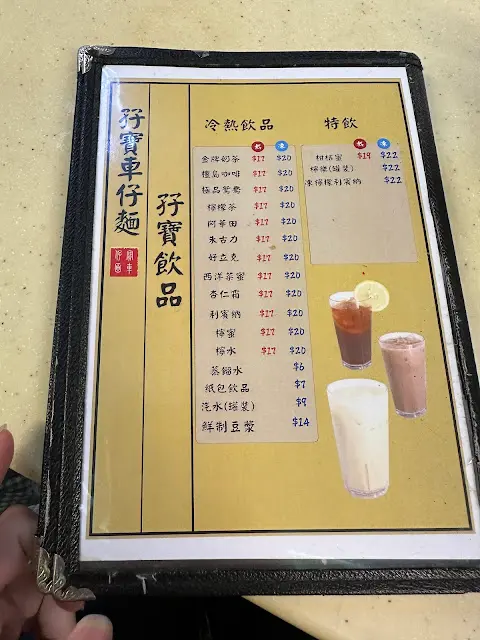 孖寶車仔麵
孖寶飲品
冷熱飲品
熱 凍
金牌奶茶 $17 $20
檀島咖啡 $17 $20
極品鴛鴦 $17 $20
檸檬茶 $17 $20
阿華田 $17 $20
朱古力 $17 $20
好立克 $17 $20
西洋菜蜜 $17 $20
杏仁霜 $17 $20
利賓納 $17 $20
檸蜜 $17 $20
檸水 $17 $20
蒸餾水 $6
紙包飲品 $7
汽水(罐裝) $9
鮮制豆漿 $14
特飲
熱 凍
柑桔蜜 $19 $22
檸樂(罐裝) $22
凍檸檬利賓納 $22